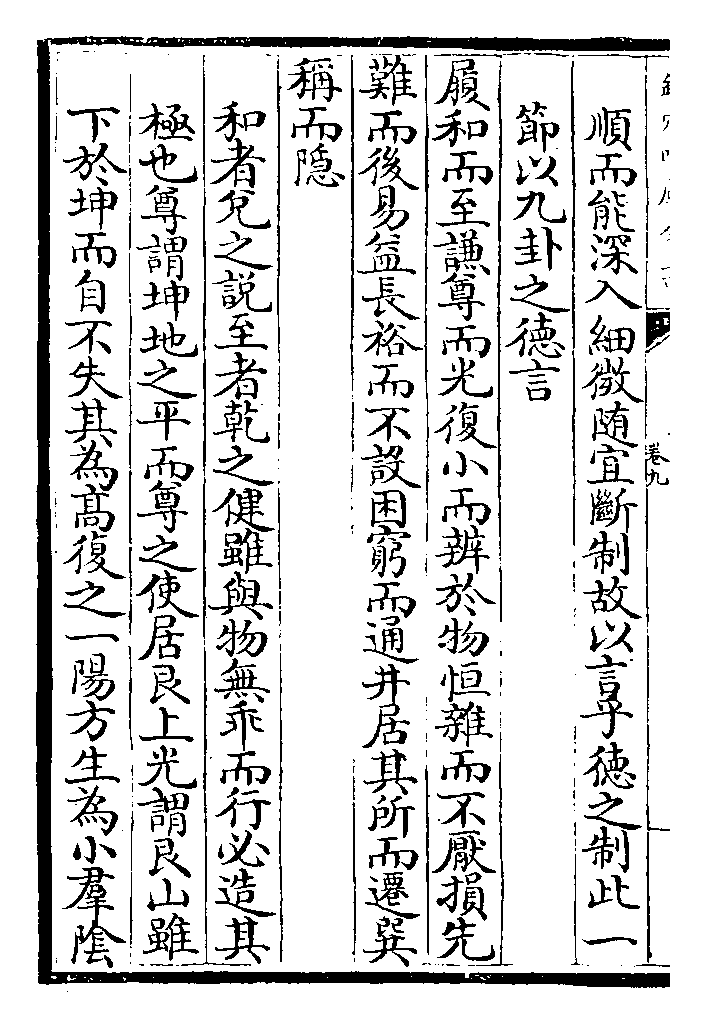 卷九
順而能深入細微隨宜斷制故以言乎德之制此一
節以九卦之德言
履和而至謙尊而光復小而辨於物恒雜而不厭損先
難而後易益長裕而不設困窮而通井居其所而遷巽
稱而隠
和者兌之説至者乾之健雖與物無乖而行必造其
極也尊謂坤地之平而尊之使居艮上光謂艮山雖
下於坤而自不失其為髙復之一陽方生為小羣陰